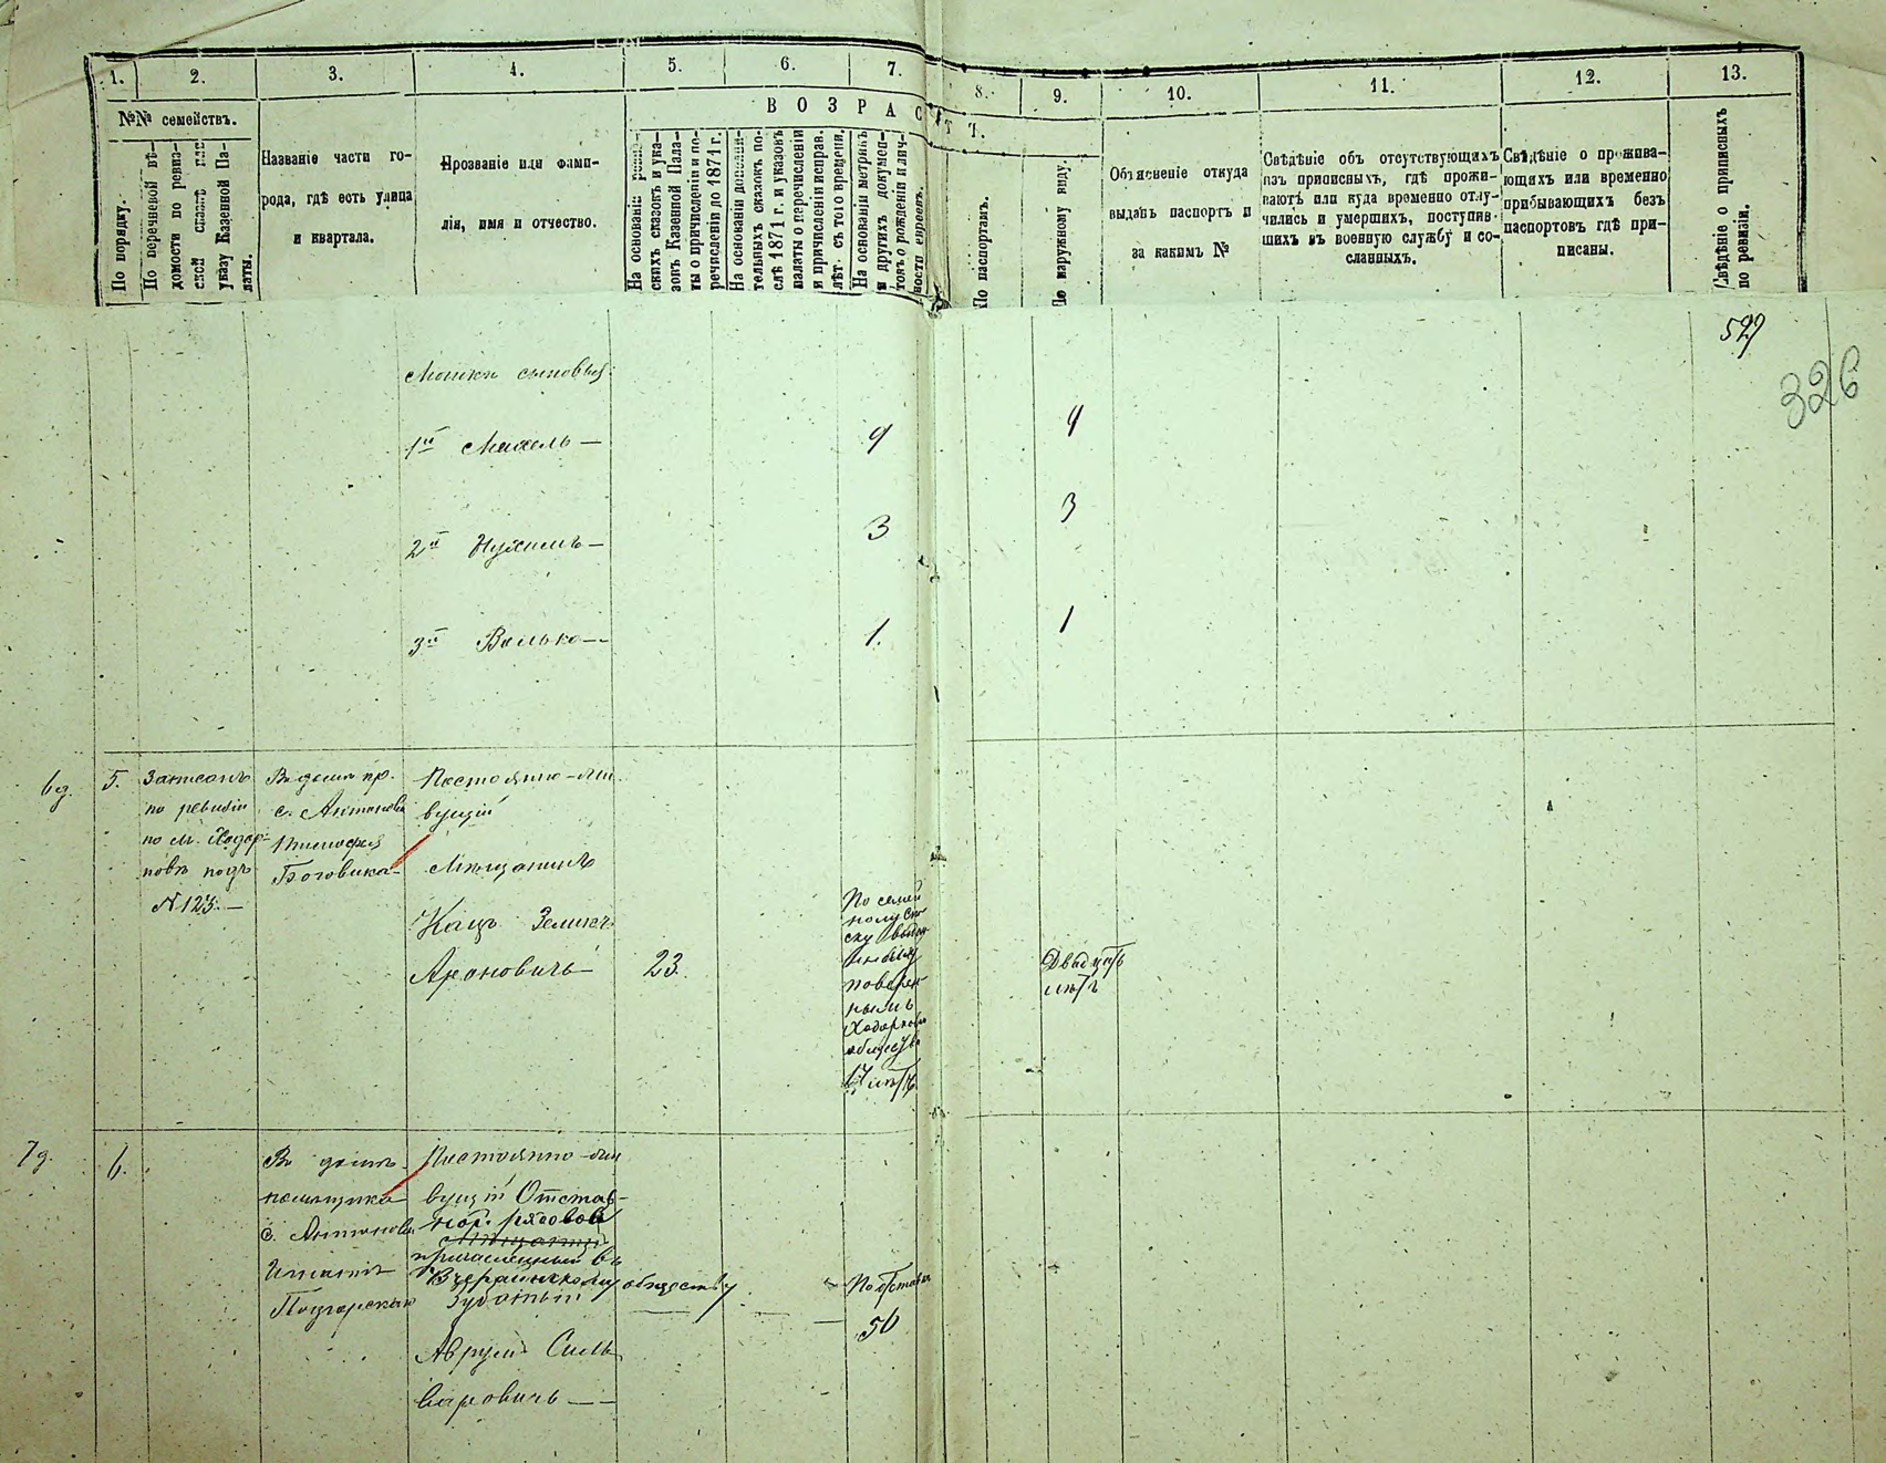 1. 2. 3. 4. 5. 6. 7. 8. 9. 10. 11. 12. 13.
№№ семействъ.
ВОЗРАСТЪ.
По порядку.
По перечневой вѣ-
домости по ревиз-
ской сказкѣ или
указу Казенной Па-
латы.
Названіе части го-
рода, гдѣ есть улица
и квартала.
Прозваніе или фами-
лія, имя и отчество.
На основаніи ревиз-
скихъ сказокъ и ука-
зовъ Казенной Пала-
ты о причисленіи и пе-
речисленіи до 1871 г.
На основаніи дополни-
тельныхъ сказокъ по-
слѣ 1871 г. и указовъ
палаты о перечисленіи
и причисленіи исправ.
лѣт. съ того времени.
На основаніи метрикъ
и другихъ докумен-
товъ о рожденіи и лич-
ности евреевъ.
По паспортамъ.
По наружному виду.
Объясненіе откуда
выданъ паспортъ и
за какимъ №
Свѣдѣніе объ отсутствующихъ
изъ приписныхъ, гдѣ прожи-
ваютъ или куда временно отлу-
чились и умершихъ, поступив-
шихъ въ военную службу и со-
сланныхъ.
Свѣдѣніе о прожива-
ющихъ или временно
прибывающихъ безъ
паспортовъ гдѣ при-
писаны.
Свѣдѣніе о приписныхъ
по ревизіи.
529
326
Мошки сыновья:
1й Махель — 9 9
2й Нухимъ — 3 3
3й Волько — 1. 1
6д. 5.
Записанъ
по ревизіи
по м. Ходор-
ковѣ подъ
№ 123. —
Въ домѣ пр.
с. Антонова
Тимофея
Боговика
Постоянно-жи
вущій
Мѣщанинъ
Кацъ Зелико
Ароновичъ — 23.
По семей
ному спи
ску
повѣрен
нымъ
Ходорков
общества
17 лѣтъ
Двадцать
лѣтъ
7д. 6.
Въ домѣ
помѣщика
с. Антонова
Игнатія
Подгорскаго
Постоянно-жи
вущій Отстав-
ной рядовой
причисленный въ
Вчерайшскому обществу
Аврумъ Силь
варовичъ — —
По отставкѣ
50